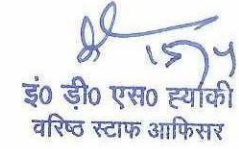 इं० डी० एस० ह्यांकी
वरिष्ठ स्टाफ आफिसर